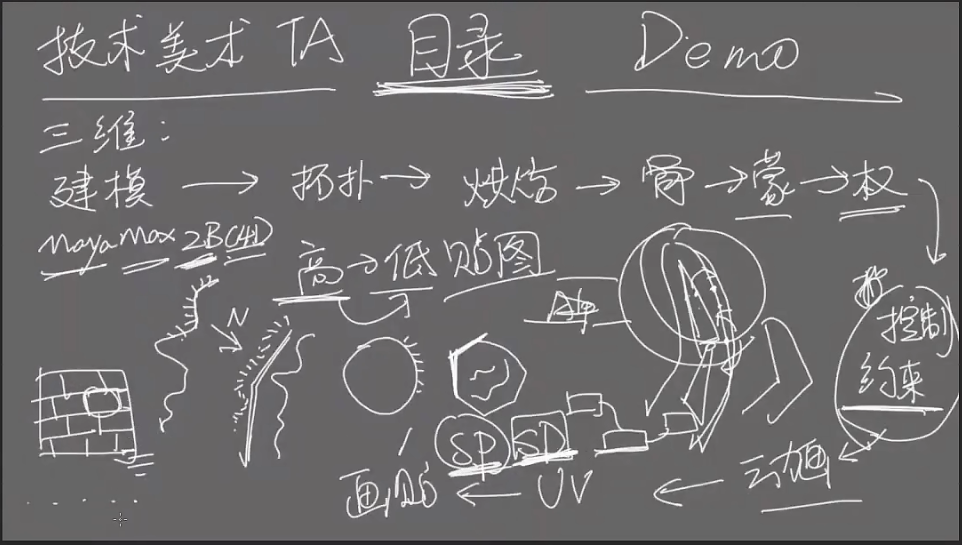 技术美术 TA 目录 Demo
三维:
建模 → 拓扑 → 烘焙 → 骨 → 蒙 → 权
maya max ZB C4D
高 → 低 贴图
N
控制
约束
SP SD
画贴 ← UV ← 动画